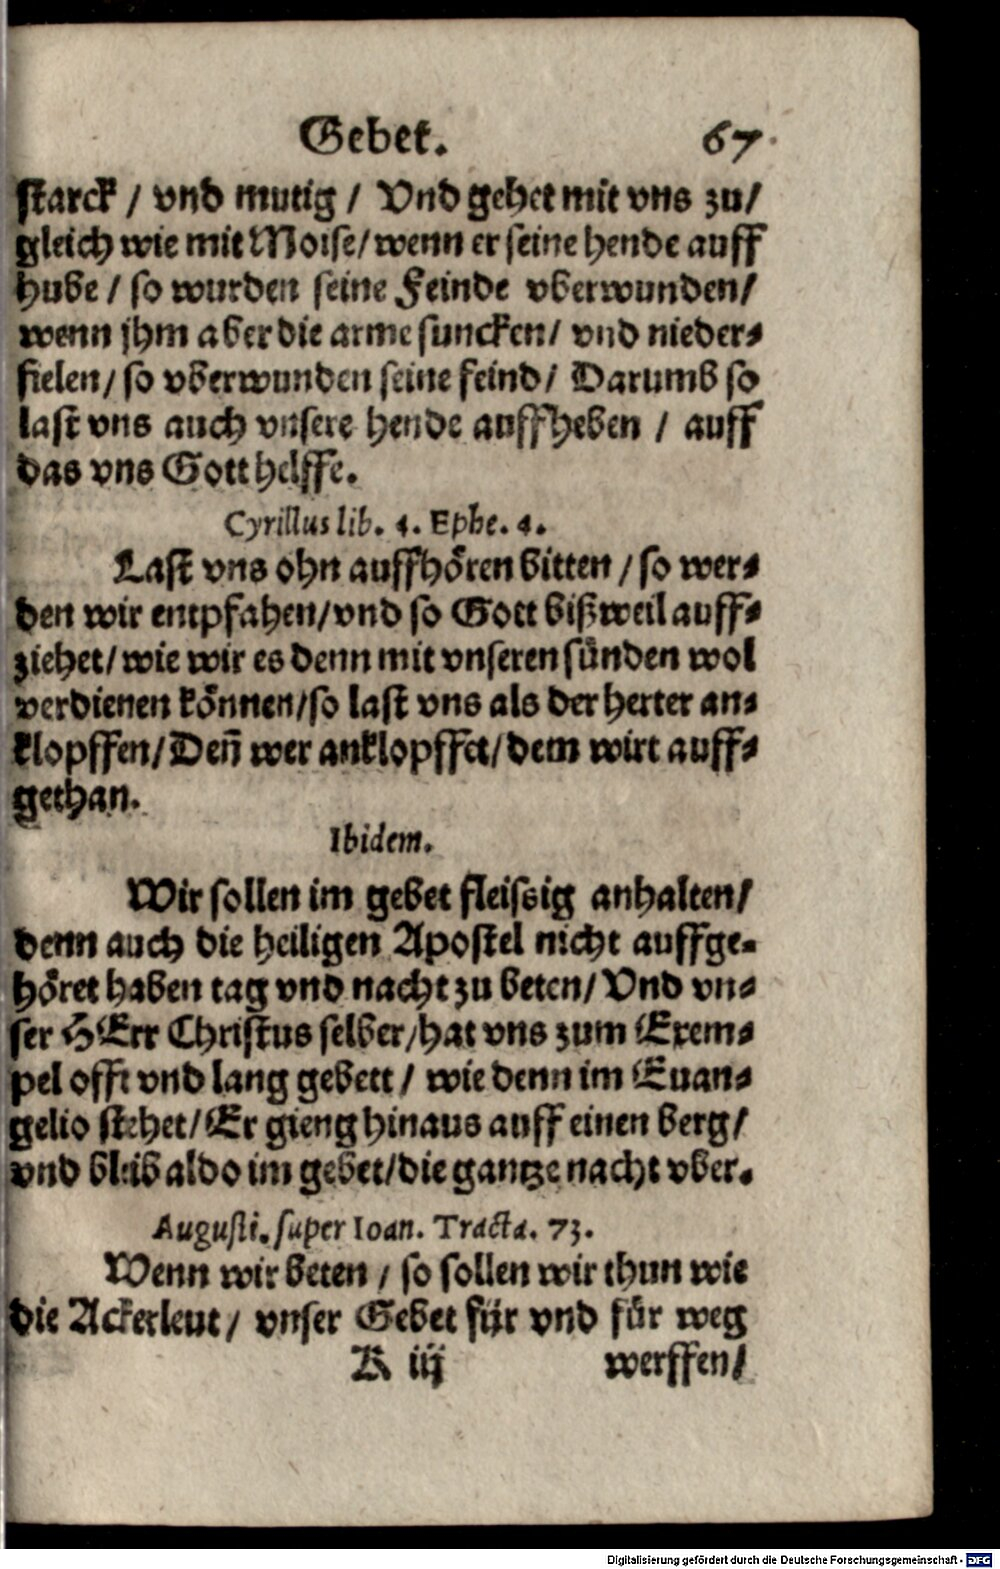 Gebet. 67.
starck / vnd mutig / Vnd gehet mit vns zu/
gleich wie mit Moise/wenn er seine hende auff
hube / so wurden seine Feinde vberwunden/
wenn jhm aber die arme suncken/ vnd nieder-
fielen/so vberwunden seine feind/ Darumb so
last vns auch vnsere hende auffheben / auff
das vns Gott helffe.
Cyrillus lib. 4. Ephe. 4.
Last vns ohn auffhören bitten / so wer-
den wir entpfahen/vnd so Gott bißweil auff-
ziehet/wie wir es denn mit vnseren sünden wol
verdienen können/so last vns als der herter an-
klopffen/Deñ wer anklopffet/dem wirt auff-
gethan.
Ibidem.
Wir sollen im gebet fleissig anhalten/
denn auch die heiligen Apostel nicht auffge-
höret haben tag vnd nacht zu beten/ Vnd vn-
ser HErr Christus selber/hat vns zum Exem-
pel offt vnd lang gebett / wie denn im Euan-
gelio stehet/Er gieng hinaus auff einen berg/
vnd bleib aldo im gebet/die gantze nacht vber.
Augusti. super Ioan. Tracta. 73.
Wenn wir beten / so sollen wir thun wie
die Ackerleut / vnser Gebet für vnd für weg
K iij werffen/
Digitalisierung gefördert durch die Deutsche Forschungsgemeinschaft - DFG